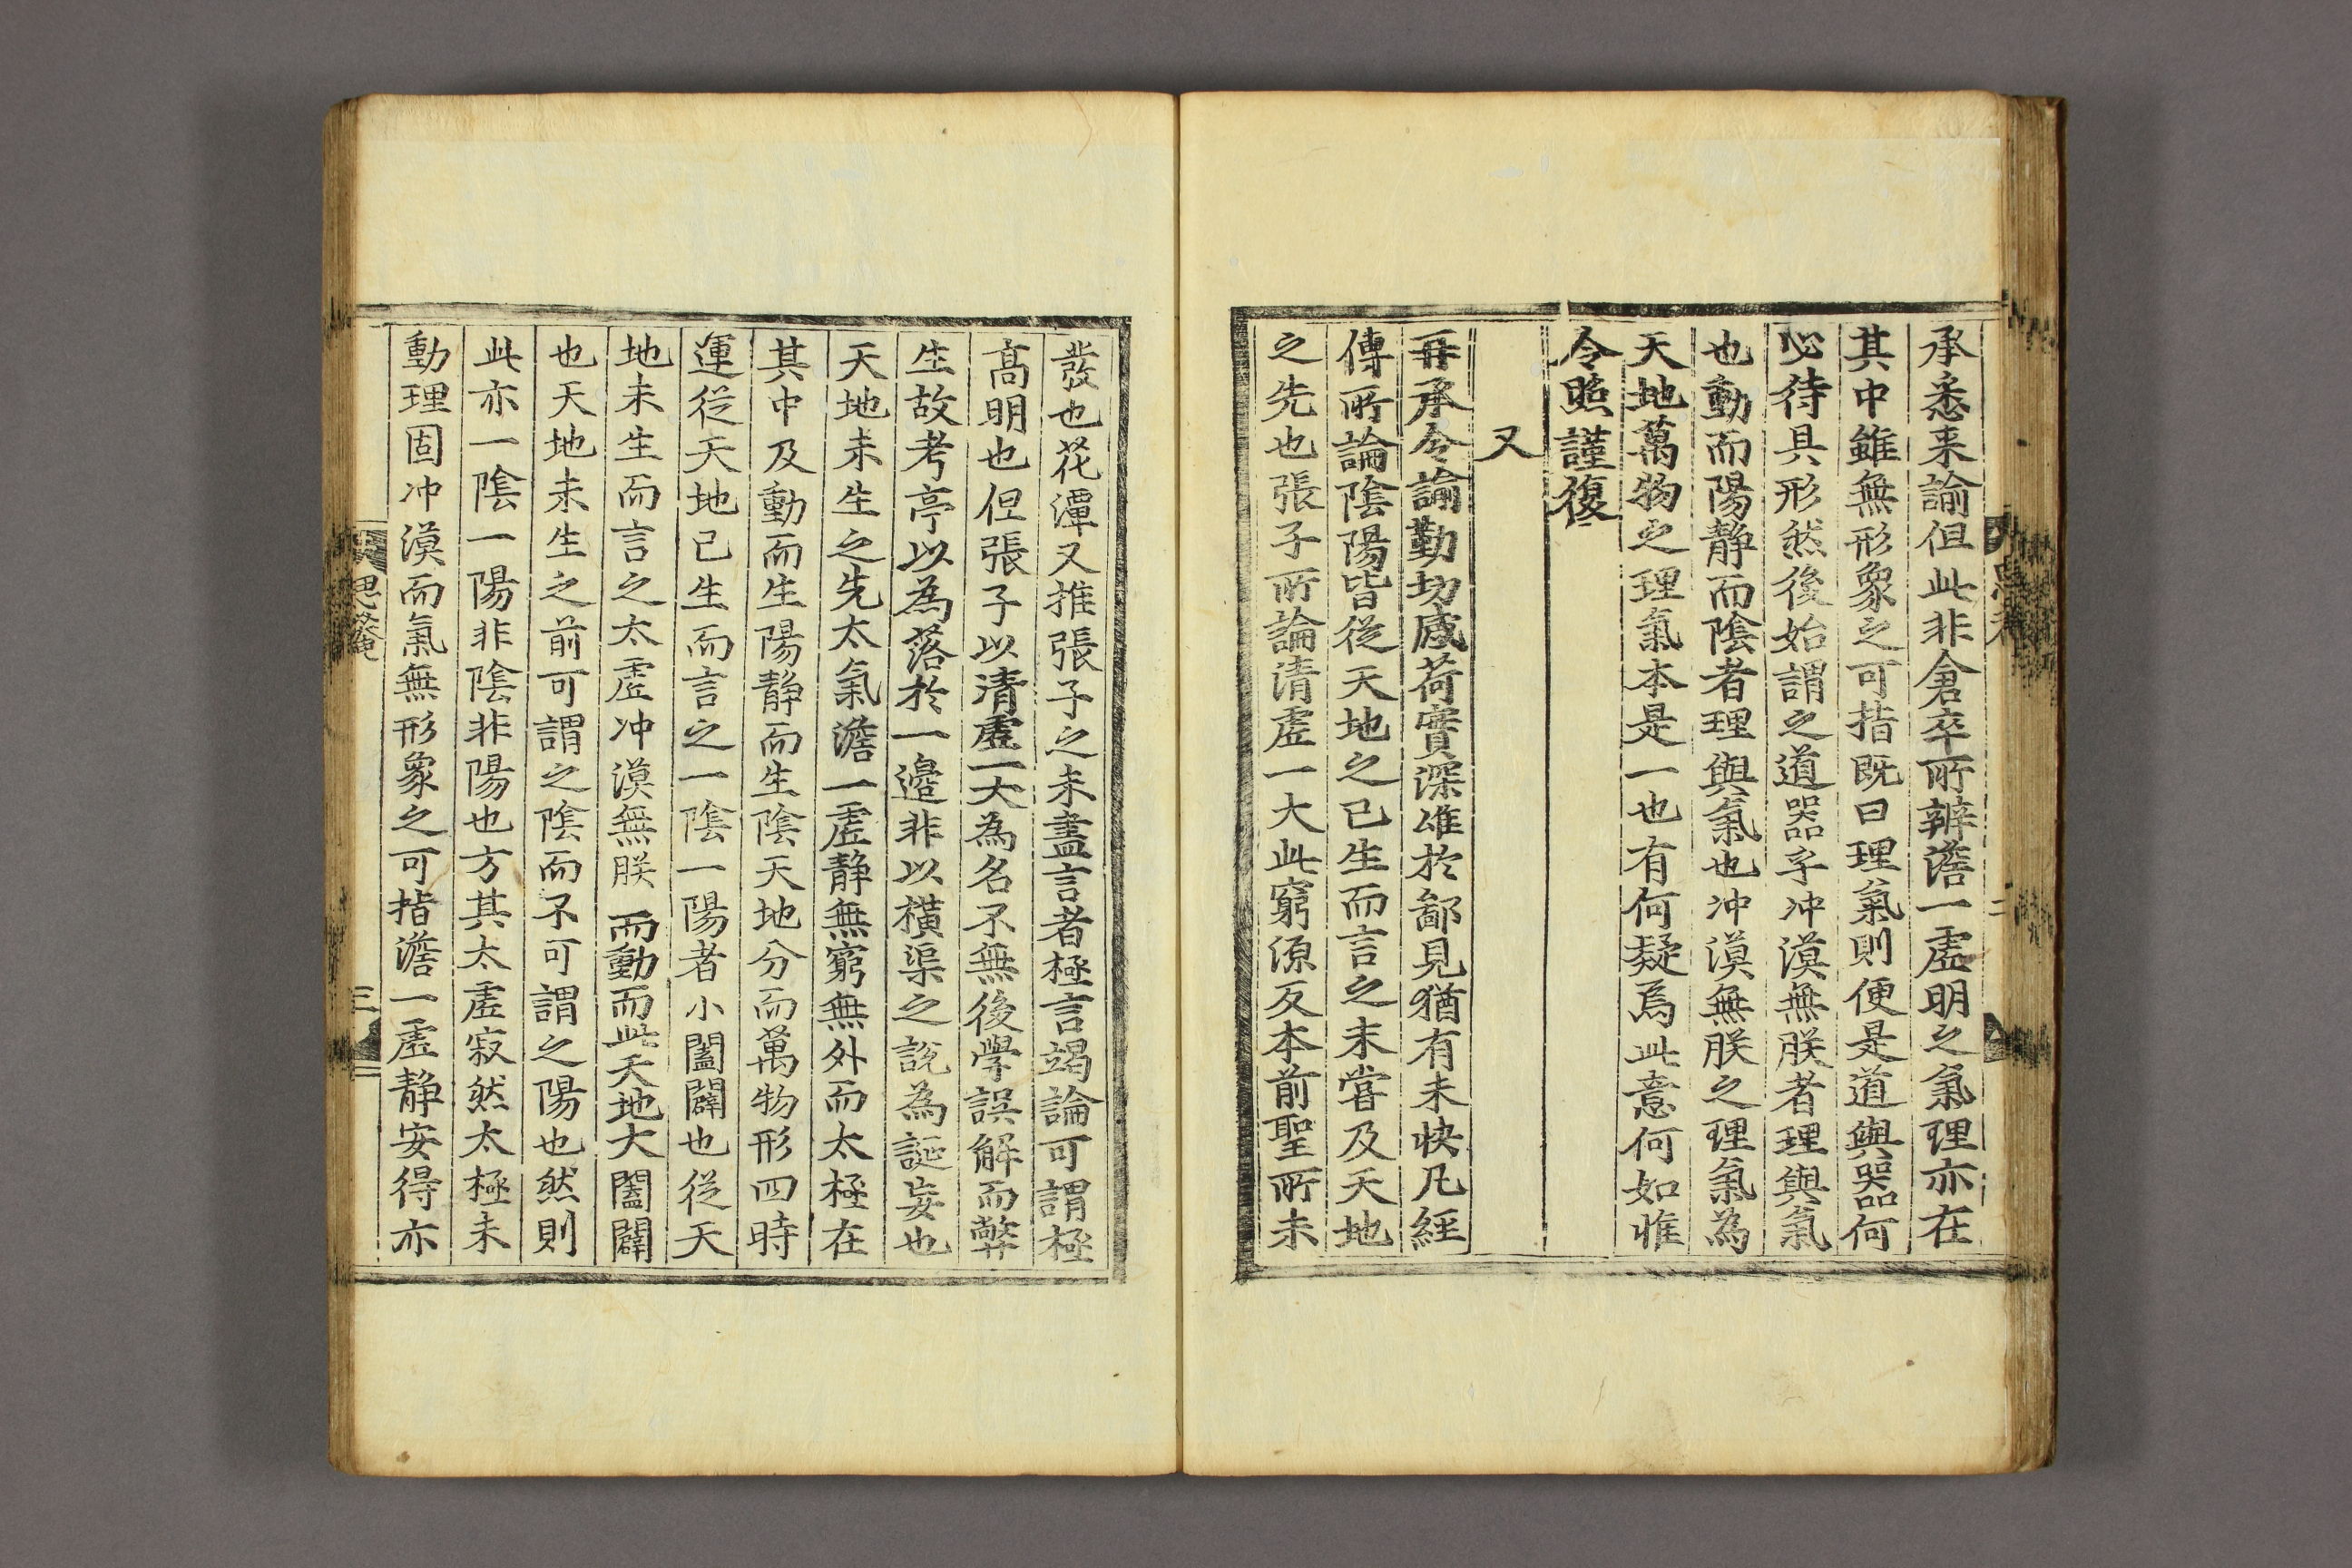 承悉来諭但此非倉卒所辨澹一虛明之氣理亦在
其中雖無形象之可指既曰理氣則便是道與器何
必待具形然後始謂之道器乎冲漠無朕者理與氣
也動而陽靜而陰者理與氣也冲漠無朕之理氣為
天地萬物之理氣本是一也有何疑焉此意何如惟
令照謹復
又
再承令諭勤切感荷實深唯於鄙見猶有未快凡經
傳所論陰陽皆從天地之已生而言之未嘗及天地
之先也張子所論清虛一大此窮源反本前聖所未
發也花潭又推張子之未盡言者極言竭論可謂極
高明也但張子以清虛一大為名不無後學誤解而弊
生故考亭以為落於一邊非以橫渠之說為誕妄也
天地未生之先太氣澹一虛靜無窮無外而太極在
其中及動而生陽靜而生陰天地分而萬物形四時
運從天地已生而言之一陰一陽者小闔闢也從天
地未生而言之太虛冲漠無朕而動而此天地大闔闢
也天地未生之前可謂之陰而不可謂之陽也然則
此亦一陰一陽非陰非陽也方其太虛寂然太極未
動理固冲漠而氣無形象之可指澹一虛靜安得亦
思菴
三
二